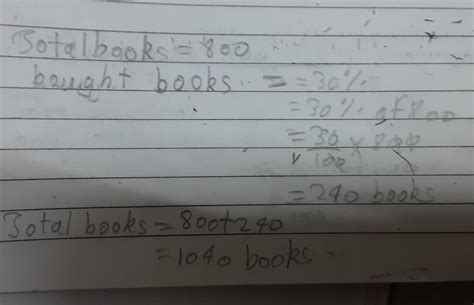 Total books = 800
bought books = = 30%
= 30% of 800
= 30/100 × 800
= 240 books
Total books = 800+240
= 1040 books